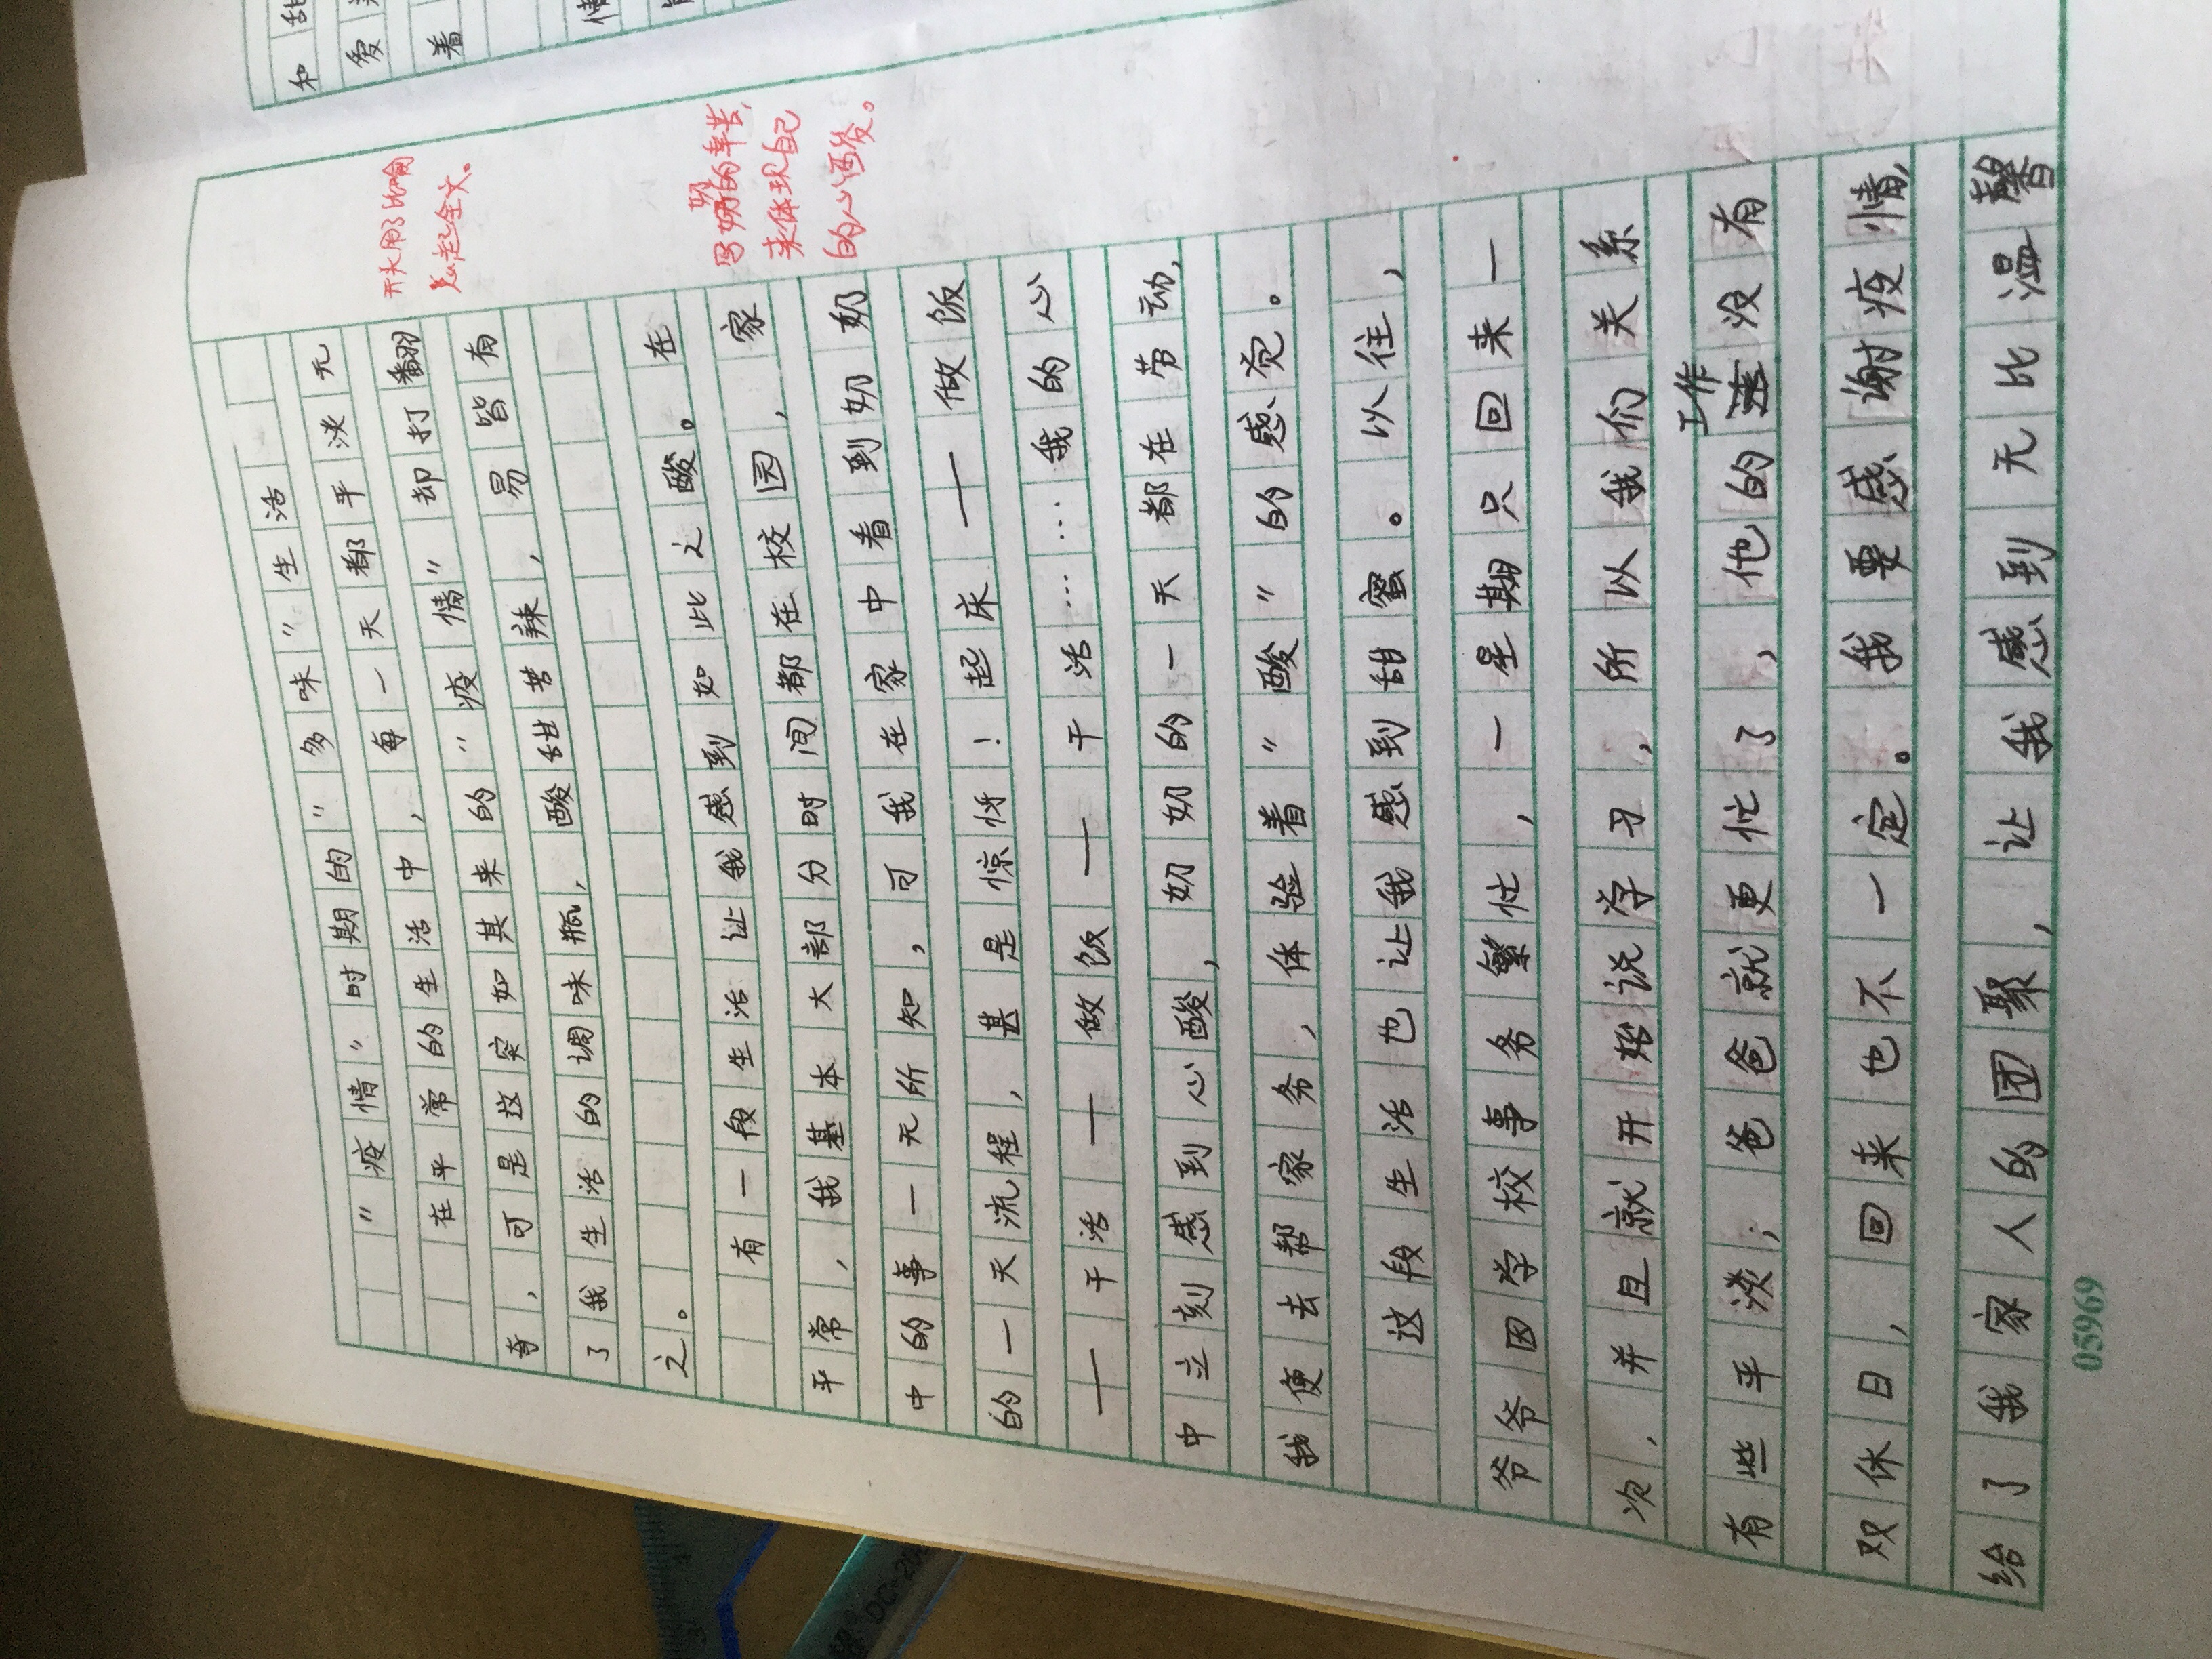 "疫情"时期的"多味"生活
在平常的生活中，每一天都平淡无
奇，可是这突如其来的"疫情"却打翻
了我生活的调味瓶，酸甜苦辣，易皆有
之。
有一段生活让我感到如此之酸。在
平常，我基本大部分时间都在校园，家
中的事一无所知，可我在家中看到奶奶
的一天流程，甚是惊讶！起床——做饭
——干活——做饭——干活……我的心
中立刻感到心酸，奶奶的一天都在劳动，
我便去帮家务，体验着"酸"的感觉。
这段生活也让我感到甜蜜。以往，
爷爷因学校事务繁忙，一星期只回来一
次，并且就开始说学习，所以我们关系
有些平淡；爸爸就更忙了，他的工作没有
双休日，回来也不一定。我要感谢疫情，
给了我家人的团聚，让我感到无比温馨
05969
开头用了比喻
总起全文。
写奶奶的辛苦，
来体现自己
的心酸。
和甜
爱
着
情